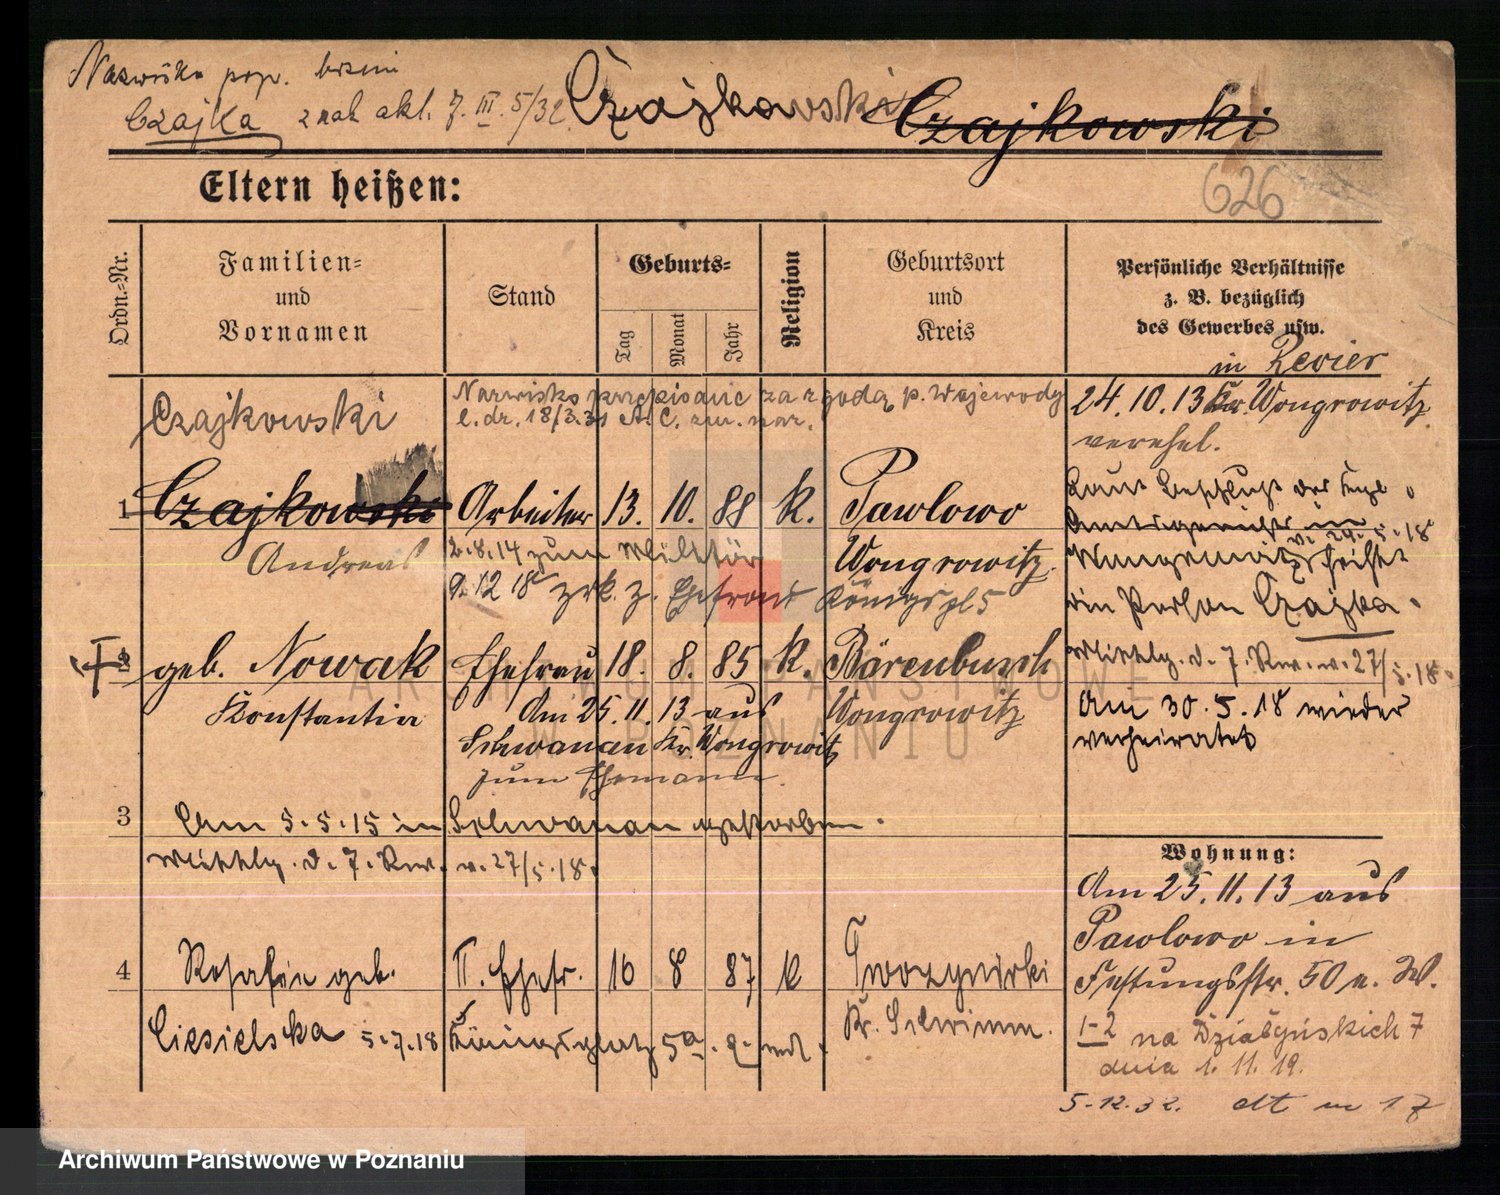 Nazwisko pop. brzmi
Czajka znak akt. 7. III. 5/32. Czajkowski Czajkowski
Eltern heißen:
626
Ordn.=Nr.
Familien=
und
Vornamen
Stand
Geburts=
Tag
Monat
Jahr
Religion
Geburtsort
und
Kreis
Persönliche Verhältnisse
z. B. bezüglich
des Gewerbes usw.
in Revier
24.10.13 Kr. Wongrowitz
verehel.
Czajkowski
Nazwisko przepisane za zgodą p. Wojewody
l. dz. 18/3.31
1 Czajkowski Arbeiter 13. 10. 88 K. Pawlowo
Andreas 2.8.14 zum Militär Wongrowitz
9.12 18 zrk. z. Ehefront Königspl 5
Laut Beschluß des Kngl.
Amtsgerichts in
Wongrowitz v. 24.5.18
ein Person Czajka.
2 geb. Nowak Ehefrau 18. 8. 85 K. Bärenbusch
Konstantia Am 25.11.13 aus Wongrowitz
Schwanau Kr. Wongrowitz
zum Ehemann.
Mittlg. d. 7. Rev. v. 27/5.18.
Am 30.5.18 wieder
verheiratet
3 Am 5.5.15 in Schwanau gestorben.
Mittlg. d. 7. Rev. v. 27/5.18.
Wohnung:
Am 25.11.13 aus
Pawlowo in
Festungsstr. 50 n. W.
1-2 na Działyńskich 7
dnia 1. 11. 19.
5.12.32. dt m 17
4 Rosalie geb. II. Ehefr. 16 8 87 K
Kr. Schrimm.
Ciesielska 5.7.18 Königsplatz 5a.
ARCHIWUM PAŃSTWOWE
W POZNANIU
Archiwum Państwowe w Poznaniu